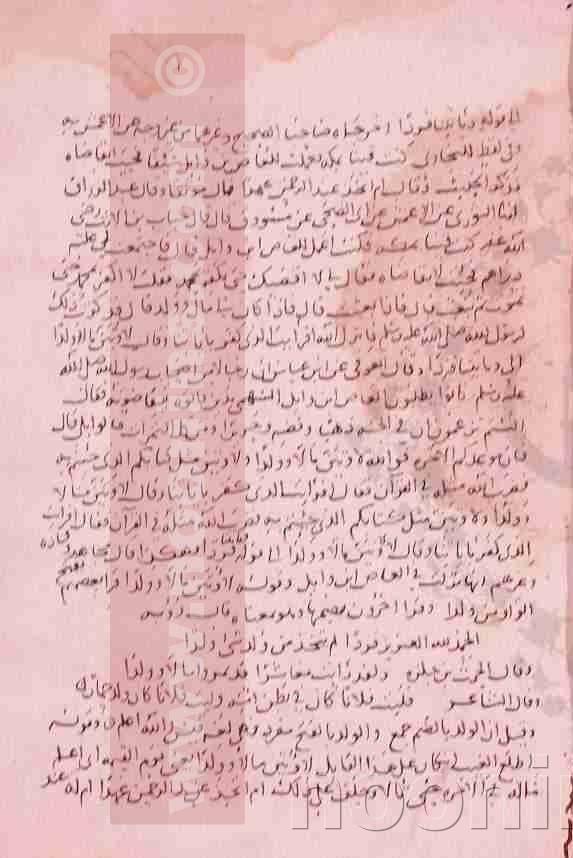 الى قوله وياتينا فردا اخرجه صاحبا الصحيح وغيرهما من غير وجه عن الاعمش به
وفي لفظ للبخاري كنت قينا بمكة فعملت للعاص بن وايل سيفا فجيت اتقاضاه
فذكر الحديث وقال ام اتخذ عند الرحمن عهدا قال موثقا وقال عبد الرزاق
انا الثوري عن الاعمش عن ابي الضحى عن مسروق قال قال خباب بن الارت رضي
الله عنه كنت قينا بمكة فكنت اعمل للعاص ابن وايل قال فاجتمعت لي عليه
دراهم فجيت لاتقاضاه فقال لي لا اقضيك حتى تكفر بمحمد فقلت لا اكفر بمحمد حتى
تموت ثم تبعث قال فاذا بعثت كان لي مال وولد قال فذكرت ذلك
لرسول الله صلى الله عليه وسلم فانزل الله افرايت الذي كفر باياتنا وقال لاوتين مالا وولدا
الى وياتينا فردا وقال العوفي عن ابن عباس ان رجالا من اصحاب رسول الله صلى الله
عليه وسلم كانوا يطلبون العاص ابن وايل السهمي بدين فاتوه يتقاضونه فقال
الستم تزعمون ان في الجنة ذهبا وفضة وحريرا ومن كل الثمرات قالوا بلى قال
فان موعدكم الاخرة فوالله لاوتين مالا وولدا ولاوتين مثل كتابكم الذي جيتم به
فضرب الله مثله في القران فقال افرايت الذي كفر باياتنا وقال لاوتين مالا
وولدا ولاوتين مثل كتابكم الذي جيتم به فضرب الله مثله في القران فقال افرايت
الذي كفر باياتنا وقال لاوتين مالا وولدا الى قوله فردا وهكذا قال مجاهد وقتادة
وغيرهم انها نزلت في العاص ابن وايل وقوله لاوتين مالا وولدا قرا بعضهم بفتح
الواو من ولدا وقرا اخرون بضمها وهو بمعناه قال روبه
الحمد لله العزيز فردا لم يتخذ من ولد شي ولدا
وقال الحرث بن حلزة ولقد رايت معاشرا قد ثمروا مالا وولدا
وقال الشاعر فليت فلانا كان في بطن امه وليت فلانا كان ولد حمار
وقيل ان الولد بالضم جمع والولد بالفتح مفرد وهي لغة قيس والله اعلم وقوله
اطلع الغيب انكار على هذا القايل لاوتين مالا وولدا يعني يوم القيمة اي اعلم
ماله في الاخرة حتى تالى وحلف على ذلك ام اتخذ عند الرحمن عهدا ام له عند